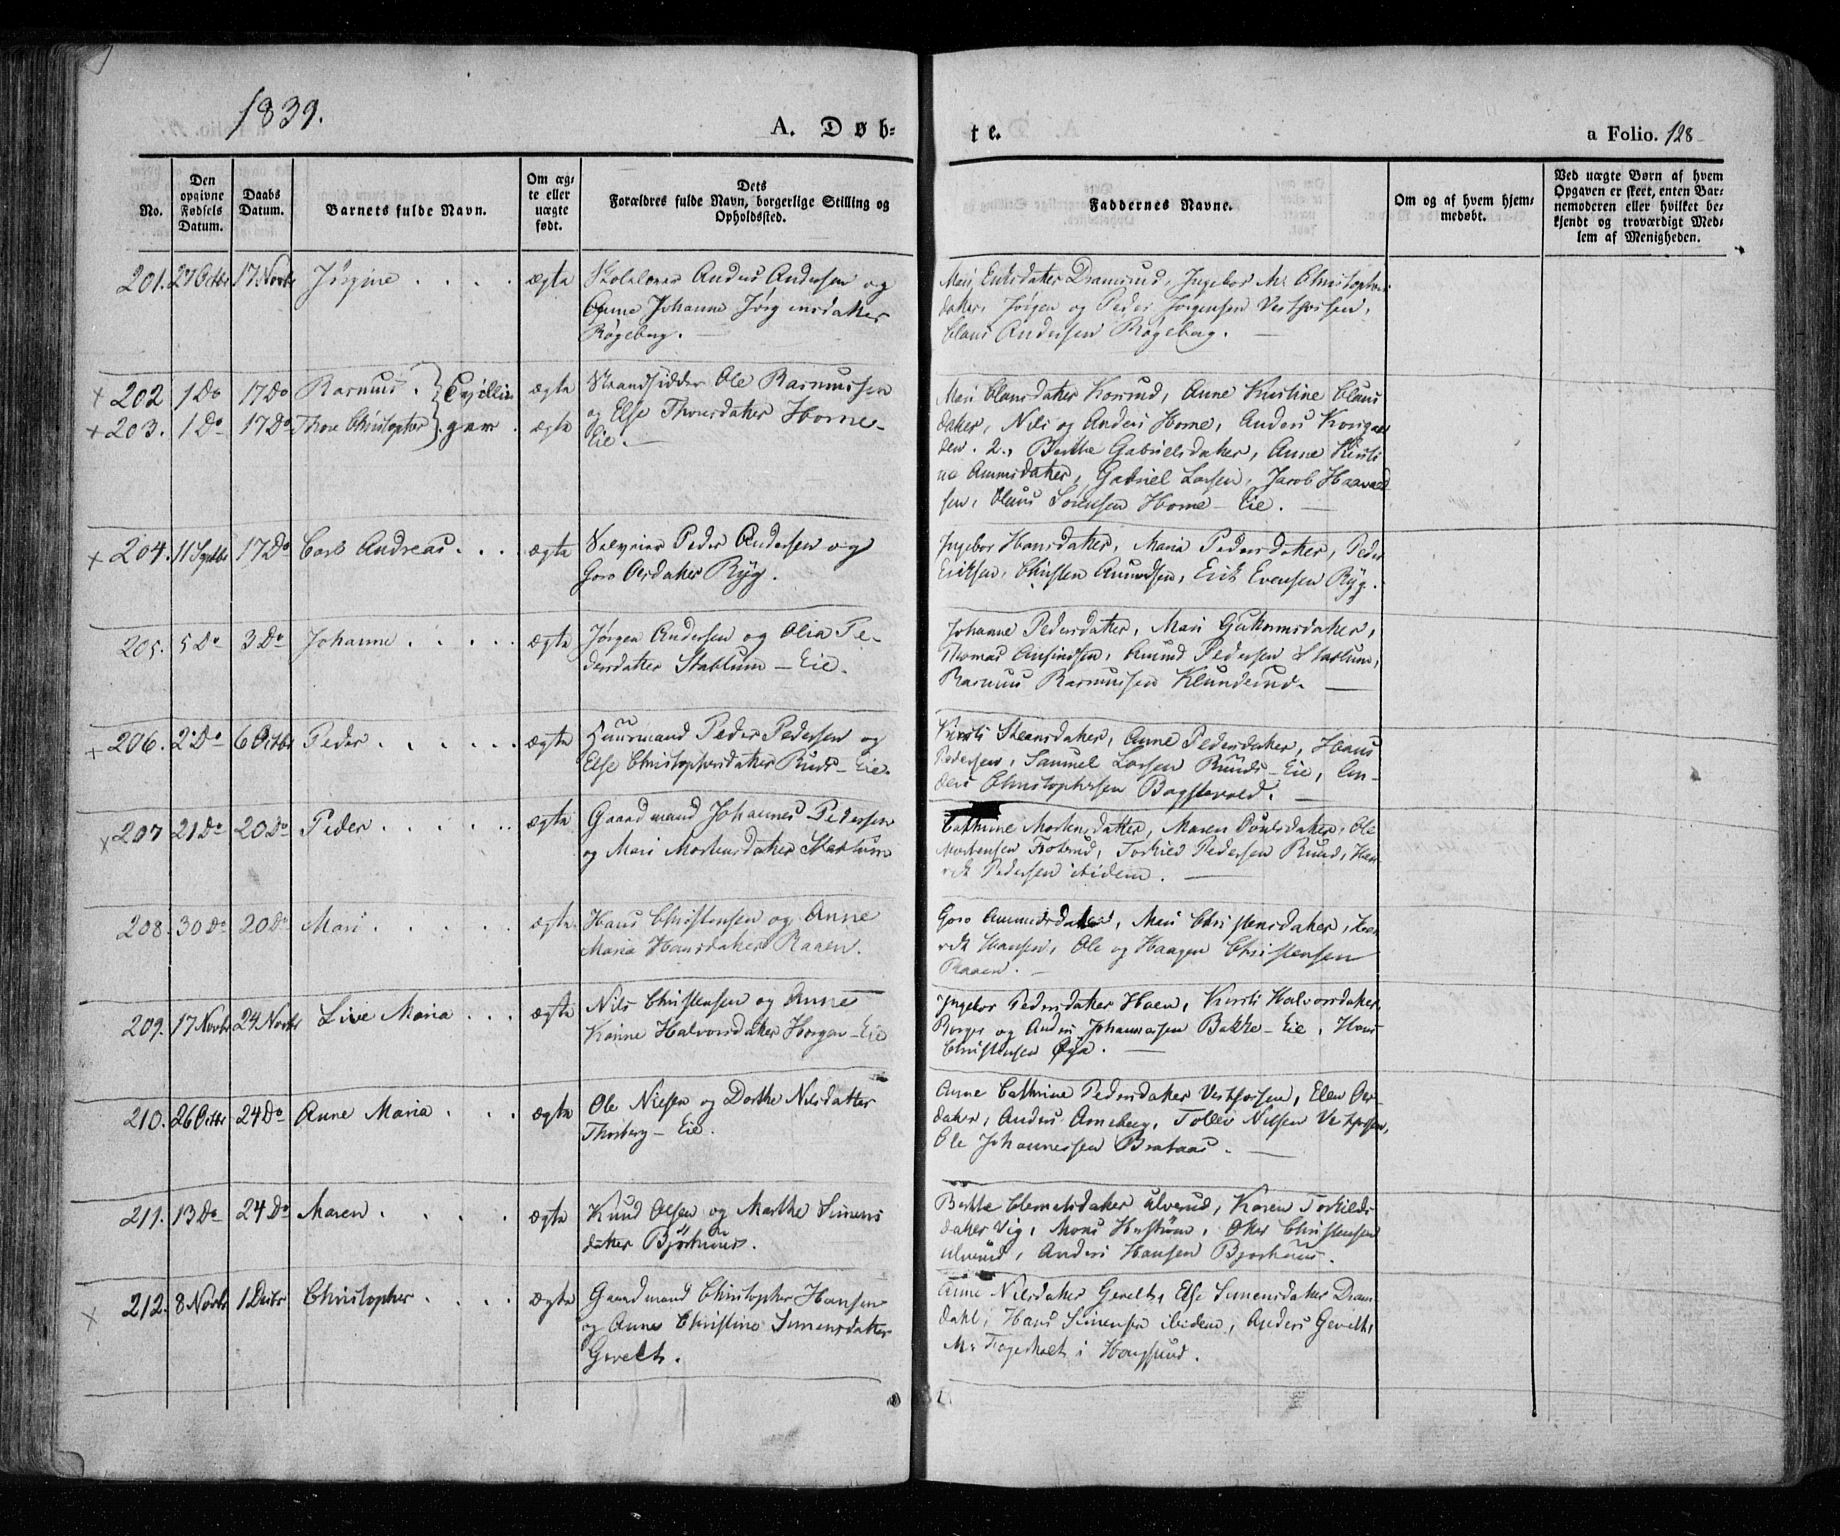 1839.
A. Døb-
te.
a Folio. 128
No.
Den opgivne Fødsels Datum.
Daabs Datum.
Barnets fulde Navn.
Om ægte eller uægte født.
Dets Forældres fulde Navn, borgerlige Stilling og Opholdssted.
Faddernes Navne.
Om og af hvem hjemmedøbt.
Ved uægte Børn af hvem Opgaven er skeet, enten Barnemoderen eller hvilket bekjendt og troværdigt Medlem af Menigheden.
201. 27 Octbr 17 Novbr Jørgine . . . . ægte
Anders Andersen og
Anne Johanne Jørgensdatter
Røgeberg. —
Jørgen og Peder Jørgensen Vestfossen,
Claus Andersen Røgeberg. —
+ 202 1 Do 17 Do Rasmus . } Tvillin ægte
+ 203. 1 Do 17 Do Thore Christopher } ger . ægte
Strandsidder Ole Rasmussen
og Else Thoresdatter Horne-
Eie. —
Mari Clausdatter Korsrud, Anne Kirstine Claus
datter, Nils og Anders Horne, Anders
2., Berthe Gabrielsdatter, Anne Kirsti
ne Amundsdatter, Gabriel Larsen, Jacob Haavald
sen, Claus Sørensen Horne-Eie. —
+ 204. 11 Septbr 17 Do Carl Andreas . . . ægte
Selveier Peder Andersen og
Goro Olesdatter Ryg.
Ingebor Hansdatter, Maria Pedersdatter, Peder
Eriksen, Christen Amundsen, Erik Evensen Ryg.
205. 5 Do 3 Do Johanne . . . . ægte
Jørgen Andersen og Olia Pe-
dersdatter Stablum-Eie.
Johanne Pedersdatter, Mari Guttormsdatter,
Thomas Amundsen, Amund Pedersen Stablum,
Rasmus Rasmussen Klunderud. —
+ 206. 2 Do 6 Octbr Peder . . . . . ægte
Huusmand Peder Pedersen og
Else Christophersdatter Ruds-Eie.
Kirsti Steensdatter, Anne Pedersdatter, Hans
Pedersen, Samuel Larsen Ruuds-Eie, An-
ders Christophersen Bagstevold. —
x 207 21 Do 20 Do Peder . . . . . ægte
Gaardmand Johannes Pedersen
og Mari Mortensdatter Stablum
Cathrine Mortensdatter, Maren Poulsdatter, Ole
Mortensen Foserud, Torkild Pedersen Ruud, Hen
rik Pedersen ibidem. —
208. 30 Do 20 Do Mari . . . . . ægte
Hans Christensen og Anne
Maria Hansdatter Raaen.
Goro Amundsdatter, Mari Christensdatter, Hen
rik Hansen, Ole og Haagen Christensen
Raaen. —
209. 17 Novbr 24 Novbr Live Maria . . . ægte
Nils Christensen og Anne
Karine Halvorsdatter Horgen-Eie
Ingebor Pedersdatter Hoen, Kirsti Halvorsdatter
Borger og Anders Johannesen Bakke-Eie, Hans
Christensen Øya. —
210. 26 Octbr 24 Do Anne Maria . . . ægte
Ole Nilsen og Dorthe Nilsdatter
Thorberg-Eie.
Anne Cathrine Pedersdatter Vestfossen, Elen Ols-
datter, Anders Arneberg, Tollev Nilsen Vestfossen,
Ole Johannessen Brataas. —
211. 13 Do 24 Do Maren . . . . ægte
Knud Olsen og Marthe Simens
datter Bjørhuus.
Berthe Clemetsdatter Ulverud, Karen Torkilds
datter Vig, Mons Hagstrøm, Christensen
Ulverud, Anders Hansen Bjørhuus.
x 212. 8 Novbr 1 Decbr Christopher . . . . ægte
Gaardmand Christopher Hansen
og Anne Christine Simensdatter
Gevelt.
Anne Nilsdatter Gevelt, Else Simensdatter Dram-
dahl, Hans Simensen ibidem, Anders Gevelt,
Mr Fagerholt i Hougsund.